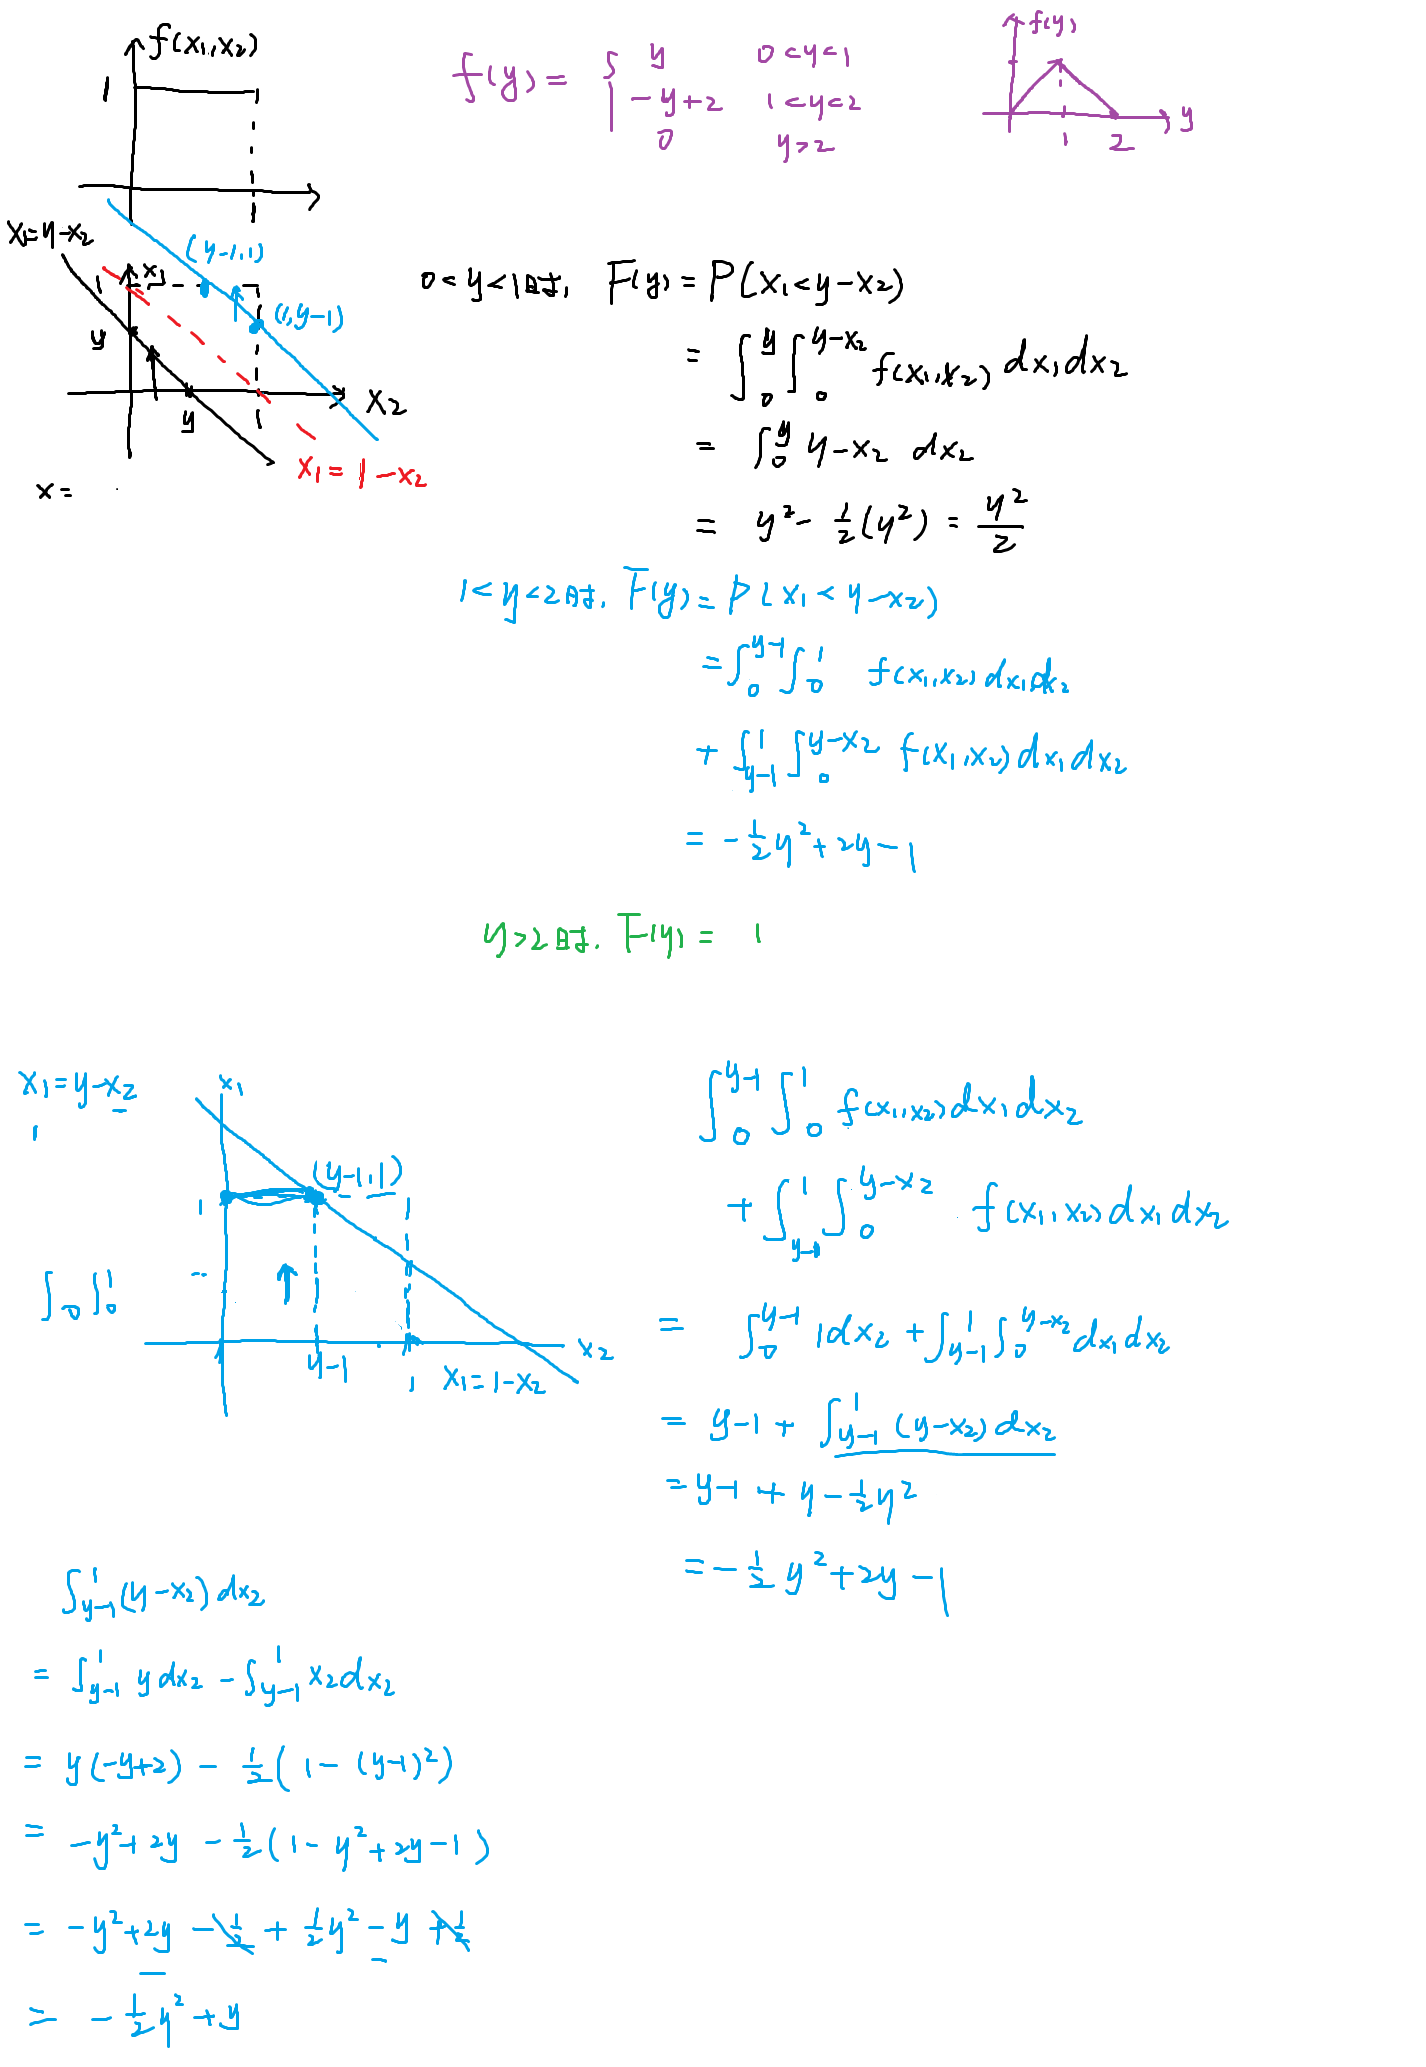 f(x₁,x₂)
1
f(y) = { y    0<y<1
-y+2    1<y<2
0    y>2
f(y)
1    2    y
x₁=y-x₂
(y-1,1)
1    x₁
(1,y-1)
y
y    x₂
x₁ = 1-x₂
x =
0<y<1时, F(y) = P(x₁<y-x₂)
= ∫₀^y ∫₀^{y-x₂} f(x₁,x₂) dx₁dx₂
= ∫₀^y y-x₂ dx₂
= y² - ½(y²) = y²/2
1<y<2时. F(y) = P(x₁<y-x₂)
= ∫₀^{y-1} ∫₀^1 f(x₁,x₂) dx₁dx₂
+ ∫_{y-1}^1 ∫₀^{y-x₂} f(x₁,x₂) dx₁dx₂
= -½y² + 2y - 1
y>2时. F(y) = 1
x₁=y-x₂
1
x₁
(y-1,1)
1
∫₀ ∫₀^1
y-1    1    x₂
x₁=1-x₂
∫₀^{y-1} ∫₀^1 f(x₁,x₂) dx₁dx₂
+ ∫_{y-1}^1 ∫₀^{y-x₂} f(x₁,x₂) dx₁dx₂
= ∫₀^{y-1} 1dx₂ + ∫_{y-1}^1 ∫₀^{y-x₂} dx₁dx₂
= y-1 + ∫_{y-1}^1 (y-x₂)dx₂
= y-1 + y - ½y²
= -½y² + 2y - 1
∫_{y-1}^1 (y-x₂)dx₂
= ∫_{y-1}^1 y dx₂ - ∫_{y-1}^1 x₂dx₂
= y(-y+2) - ½(1-(y-1)²)
= -y²+2y - ½(1-y²+2y-1)
= -y²+2y - ½ + ½y² - y + ½
= -½y² + y